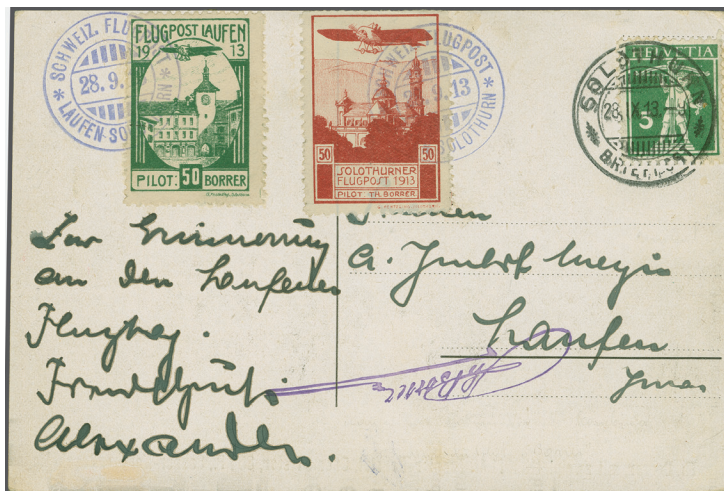 SCHWEIZ. FLUGPOST
28.9.
LAUFEN-SOLOTHURN
FLUGPOST LAUFEN
1913
PILOT: 50 BORRER
SCHWEIZ. FLUGPOST
9.13
SOLOTHURN
50 50
SOLOTHURNER
FLUGPOST 1913
PILOT TH. BORRER
HELVETIA
5
SOLOTHURN
28.IX.13. 9
BRIEF
Zur Erinnerung
an den Laufener
Flugtag.
Alexander.
A.
Laufen